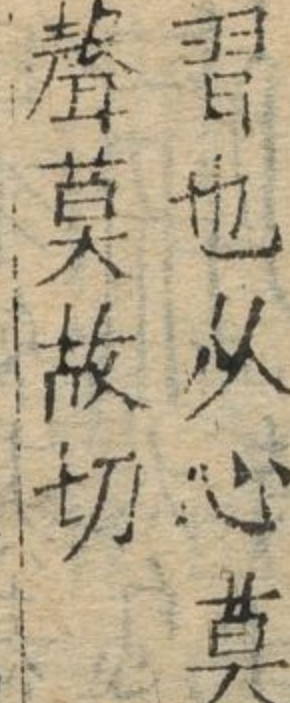 習也从心莫
聲莫故切